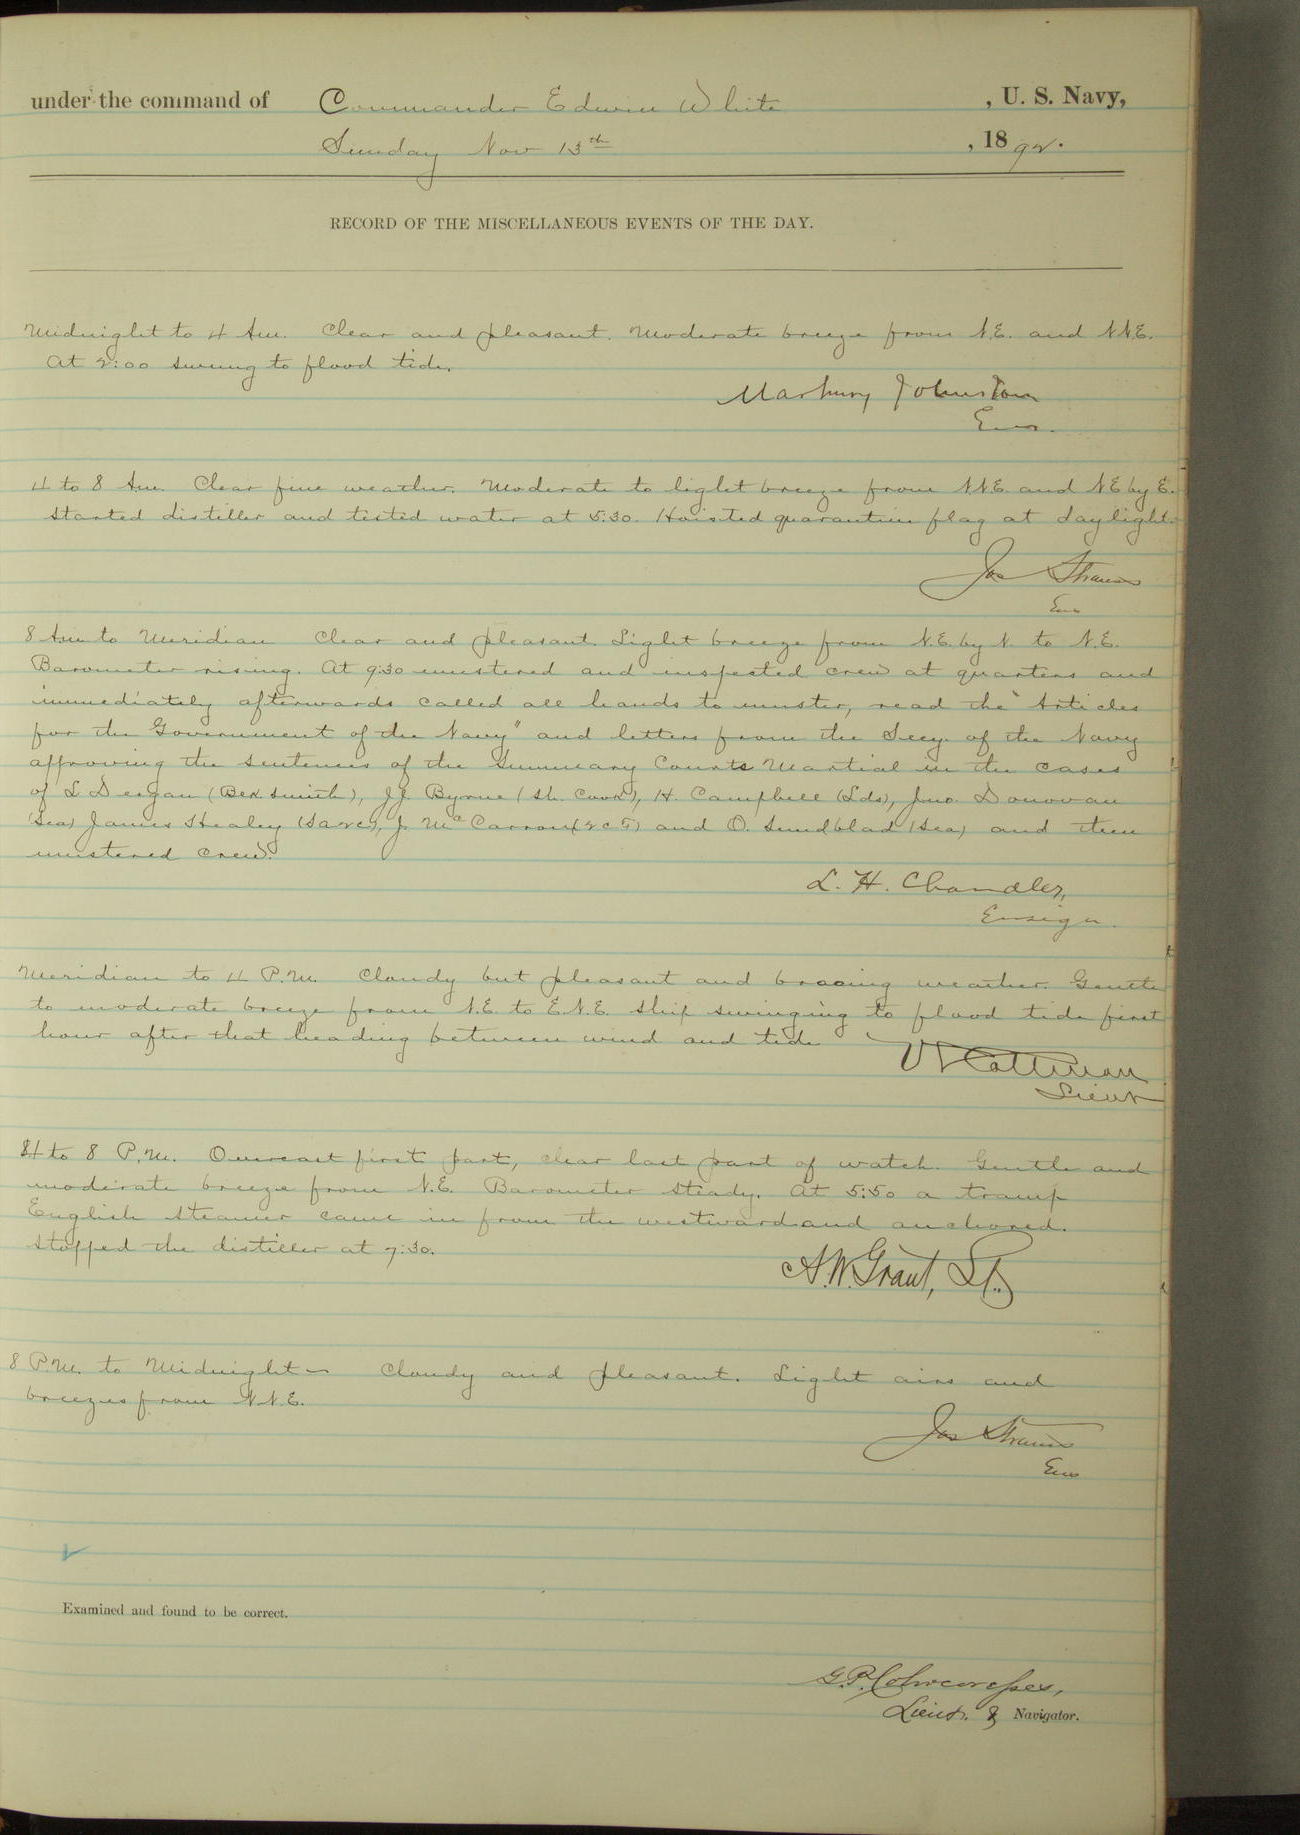 under the command of Commander Edwin White , U. S. Navy,
Sunday Nov 13th , 1892.
RECORD OF THE MISCELLANEOUS EVENTS OF THE DAY.
Midnight to 4 Am. Clear and pleasant. Moderate breeze from N.E. and N.N.E.
At 2:00 swung to flood tide.
Marbury Johnston
Ens.
4 to 8 Am. Clear fine weather. Moderate to light breeze from N.N.E. and N.E. by E.
Started distiller and tested water at 5.30. Hoisted quarantine flag at daylight.
Jos Strauss
Ens
8 Am to Meridian Clear and pleasant. Light breeze from N.E. by N. to N.E.
Barometer rising. At 9:30 mustered and inspected crew at quarters and
immediately afterwards called all hands to muster, read the "Articles
for the Government of the Navy" and letters from the Secy. of the Navy
approving the sentences of the Summary Courts Martial in the cases
of L Deegan (Blk. Smith), J.J. Byrne (Sh. Cook), H. Campbell (Lds), Jno. Donovan
(Sea) James Healey (Sa2c), J. McCarron (2c F) and O. Sundblad (Sea) and then
mustered crew.
L. H. Chandler,
Ensign.
Meridian to 4 P.M. Cloudy but pleasant and bracing weather. Gentle
to moderate breeze from N.E. to E.N.E. Ship swinging to flood tide first
hour after that heading between wind and tide
V L Cottman
Lieut
4 to 8 P.M. Overcast first part, clear last part of watch. Gentle and
moderate breeze from N.E. Barometer steady. At 5:50 a tramp
English steamer came in from the westward and anchored.
Stopped the distiller at 7:30.
A.W. Grant, Lt.
8 P.M. to Midnight— Cloudy and pleasant. Light airs and
breezes from N.N.E.
Jos Strauss
Ens
Examined and found to be correct.
G.P. Colvocoresses,
Lieut. & Navigator.